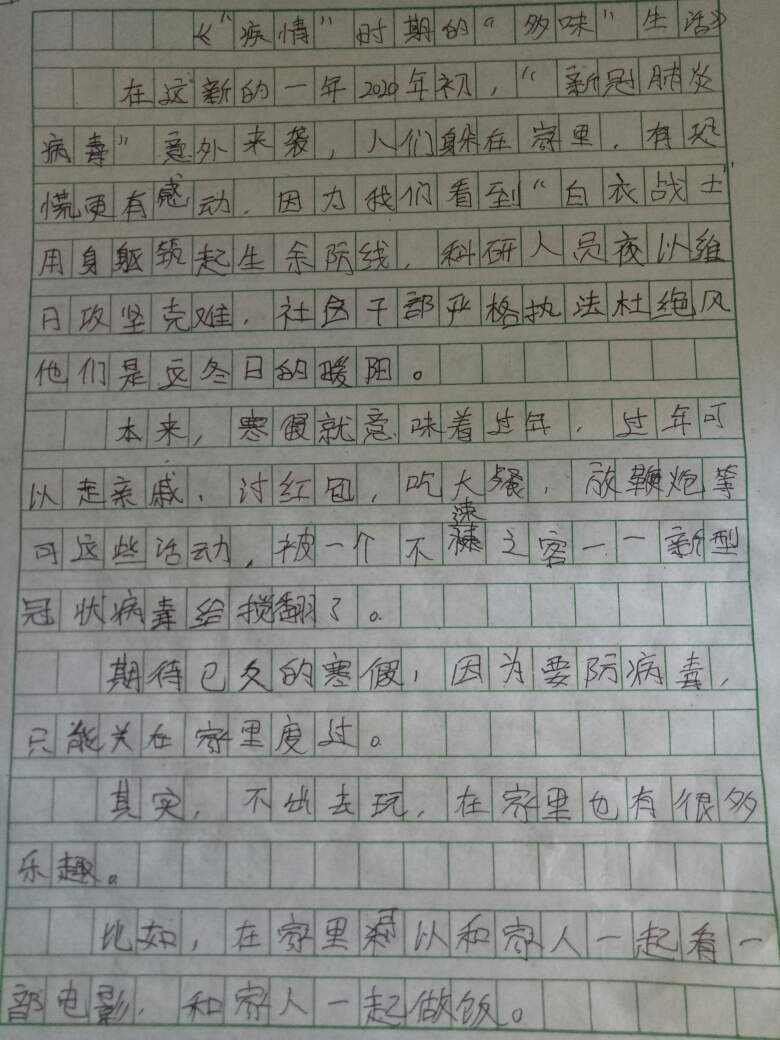 《“疾情”时期的“多味”生活》
在这新的一年2020年初，“新冠肺炎
病毒”意外来袭，人们躲在家里，有恐
慌更有感动，因力我们看到“白衣战士”
用身躯筑起生余防线，科研人员夜以维
日攻坚克难，社区干部严格执法杜绝风
他们是这冬日的暖阳。
本来，寒假就意味着过年，过年可
以走亲戚，讨红包，吃大餐，放鞭炮等
可这些活动，被一个不速之客一一新型
冠状病毒给搅翻了。
期待已久的寒假，因为要防病毒，
只能关在家里度过。
其实，不出去玩，在家里也有很多
乐趣。
比如，在家里可以和家人一起看一
部电影，和家人一起做饭。